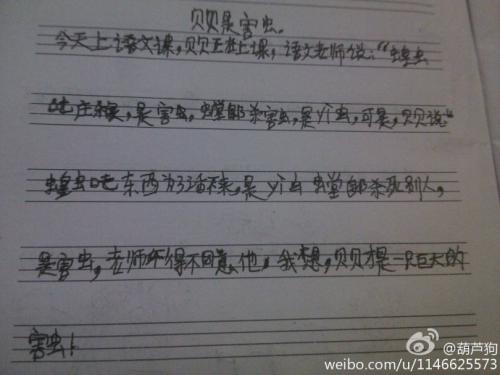 贝贝是害虫.
今天上语文课,贝贝正在上课,语文老师说:“蝗虫
吃庄稼,是害虫,螳螂杀害虫,是益虫,可是,贝贝说“
蝗虫吃东西为了活下来,是益虫 螳螂杀死别人,
是害虫,老师不得不同意他,我想,贝贝才是一只巨大的
害虫!
葫芦狗
weibo.com/u/1146625573